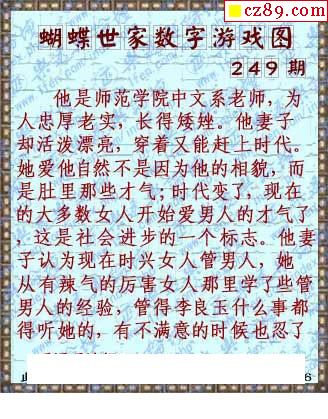 cz89.com
蝴蝶世家数字游戏图
249期
他是师范学院中文系老师，为
人忠厚老实，长得矮矬。他妻子
却活泼漂亮，穿着又能赶上时代。
她爱他自然不是因为他的相貌，而
是肚里那些才气；时代变了，现在
的大多数女人开始爱男人的才气了
，这是社会进步的一个标志。他妻
子认为现在时兴女人管男人，她
从有辣气的厉害女人那里学了些管
男人的经验，管得李良玉什么事都
得听她的，有不满意的时候也忍了